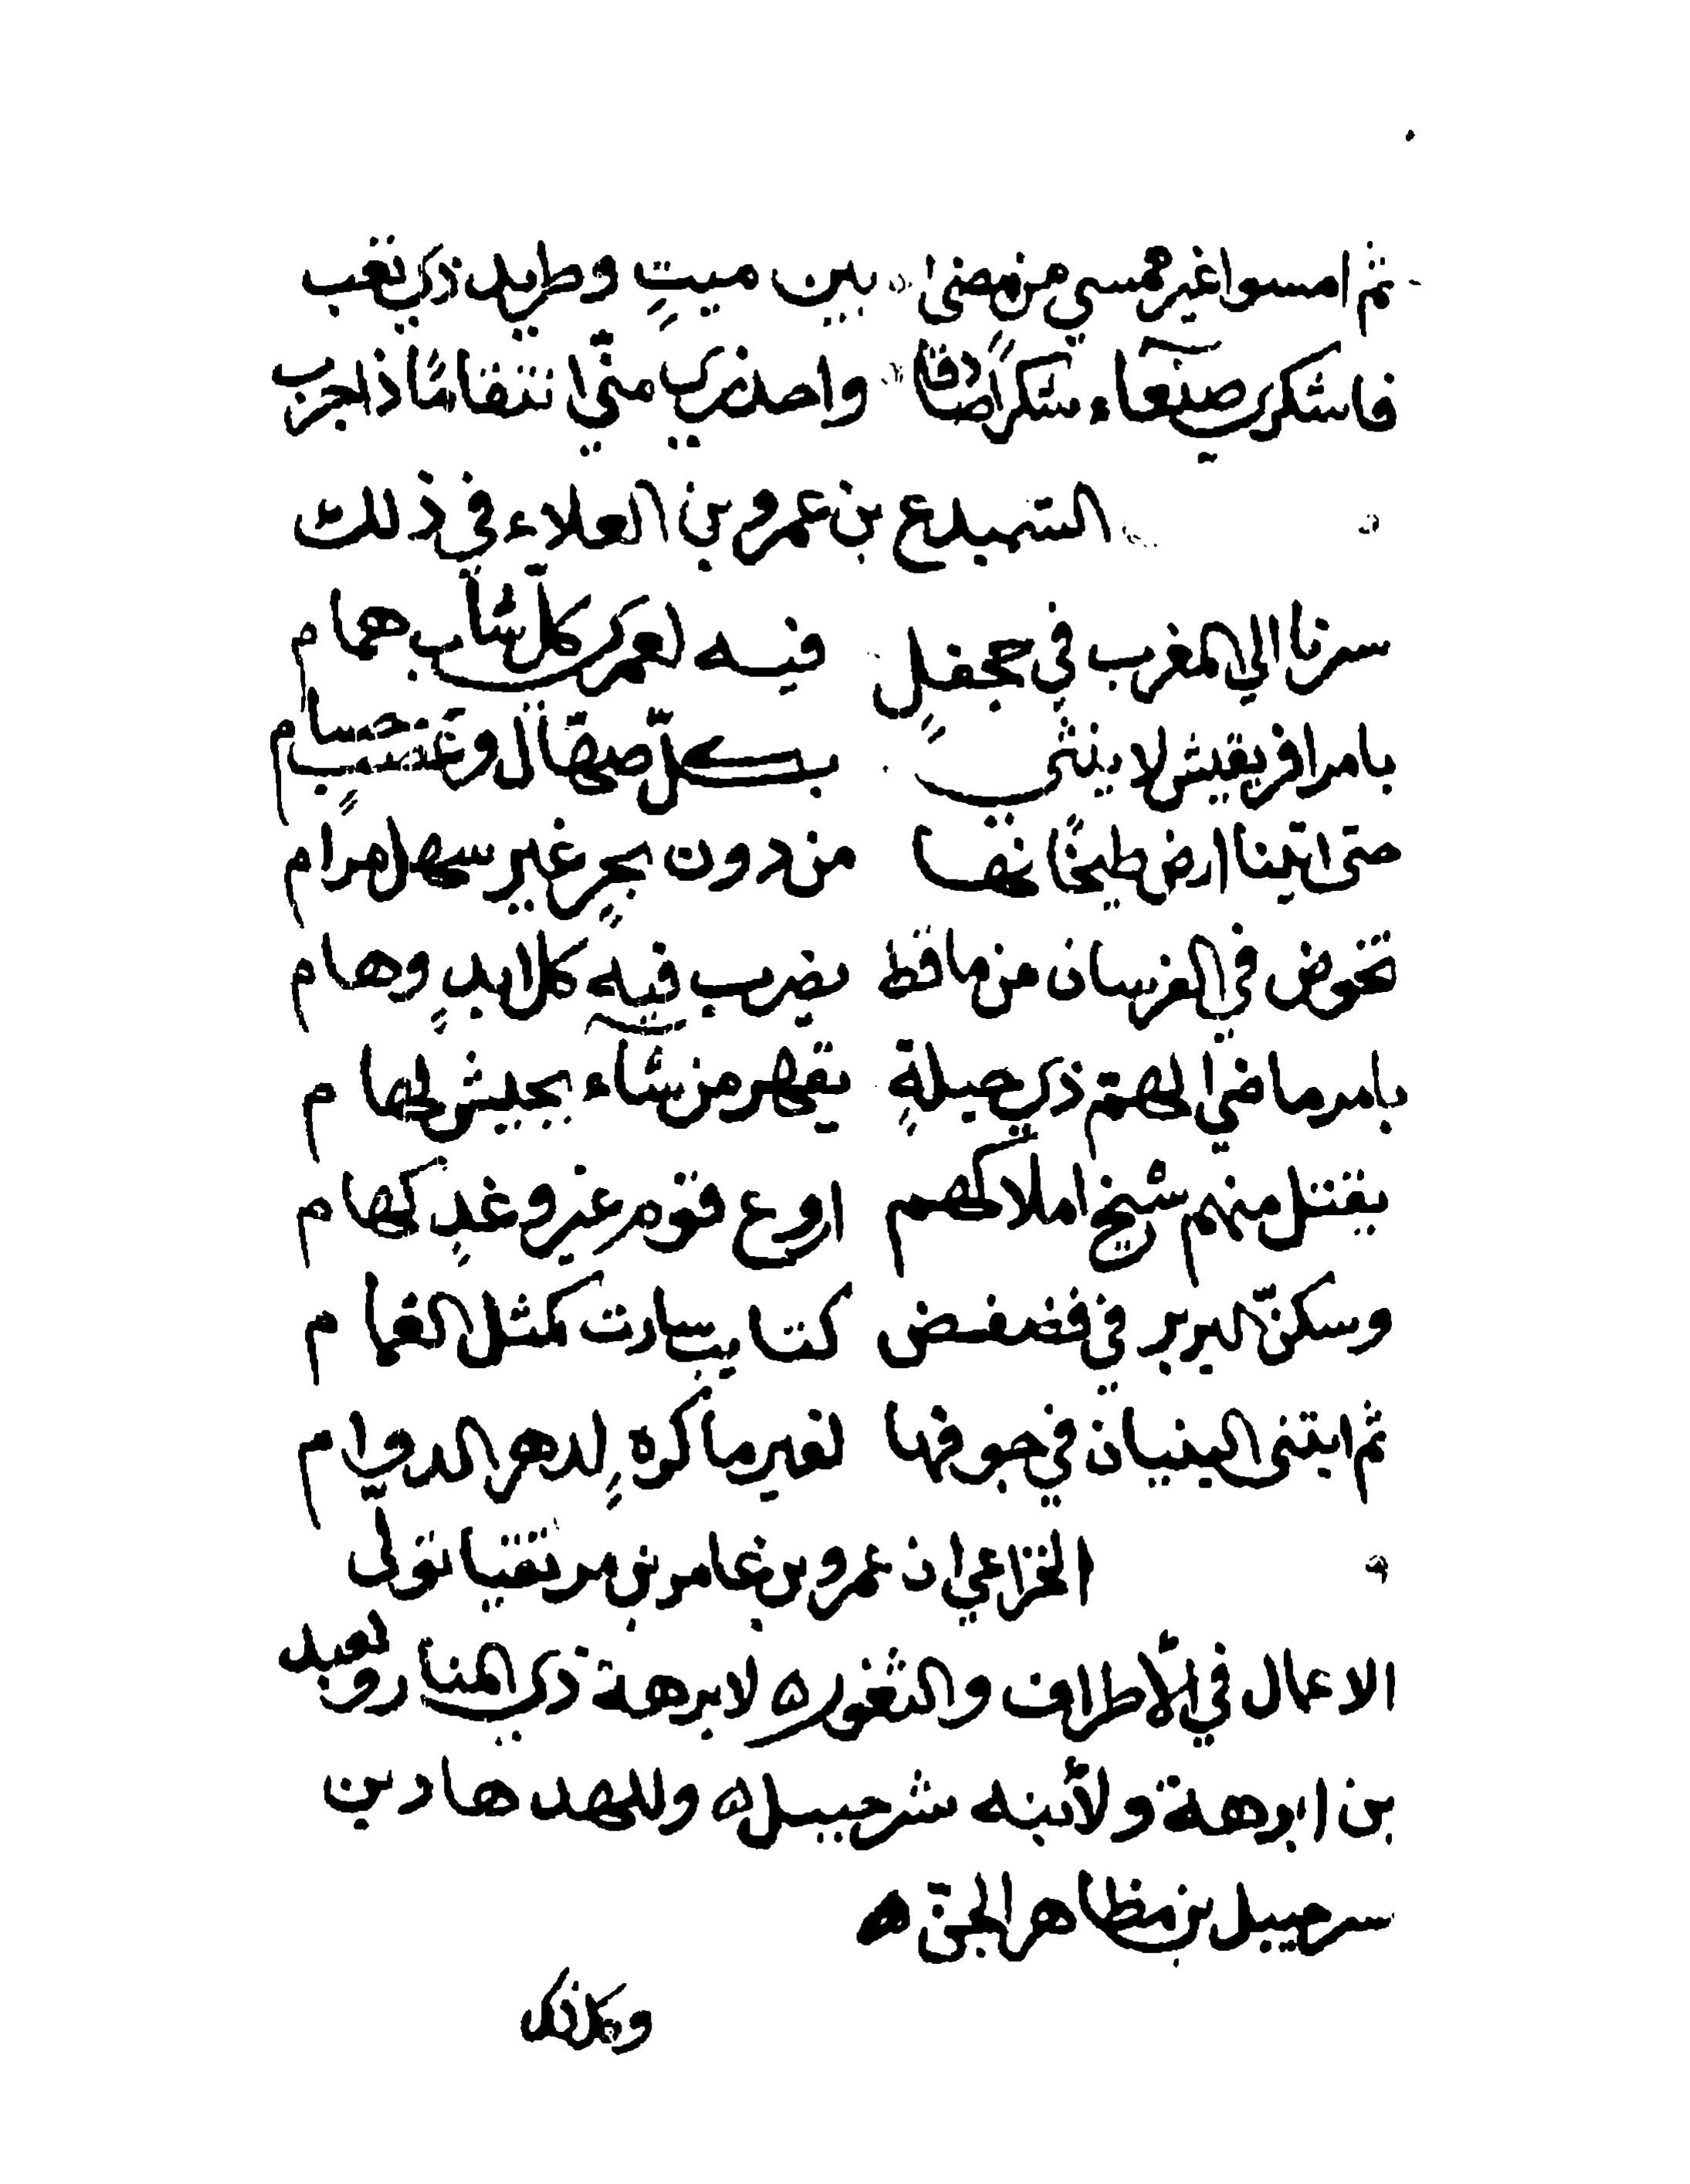 ثم امسوا غير ممسي من مضى بين ميتٍ وطريد ذي تعب
فاشكري صنعآء شكراً صادقا واحذري مني انتقامًا ذا لجرب
السميدع بن عمرو بن العلاء في ذلك
سرنا الي المغرب في جحفلٍ فيه لعمرى كل شاب همام
بامر افريقيش لا ينثني بكلّ صهّال وعضبٍ حسام
حتى اتينا ارض طيخًا نها من دون بحرٍ غير سهل مرام
تخوض في الفرسان من ماقط يضرب فيه كل ايدٍ وهام
بامر ماضي الهم ذي حيلةٍ يقهر من شآء بجيش لهام
يقتل منهم شيخ املاكهم اروع قوم غير وغدٍ كهام
وسكن البربر في فضفض كتايب سارت كمثل الغمام
ثم ابتنى البنيان في جوفها لغير ما كره لدهر الدوام
الخزاعي ان عمرو بن عامر بن مزيقيا تولى
الاعمال في الاطراف والثغور ه لابرهة ذي المنار وبعد
بن ابرهة ولابنه شرحبيل ه وللهدهاد بن
سرحبيل بن مظاهر الجن ه
وكان